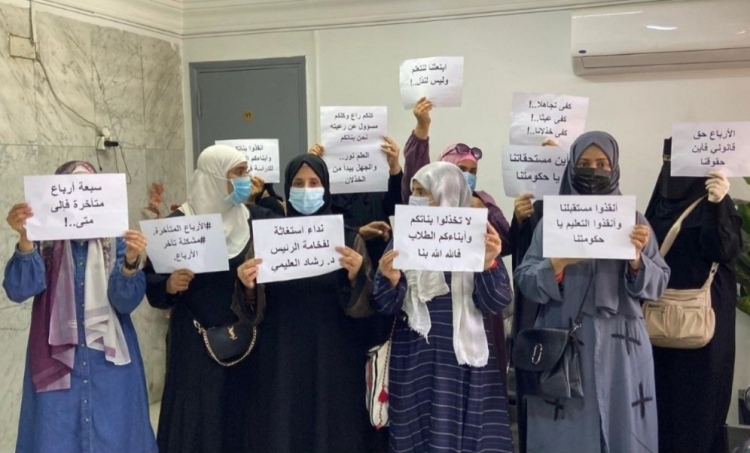 ابتعثنا لنتعلم
وليس لنذل..!
كلكم راعٍ وكلكم
مسؤول عن رعيته
نحن بناتكم
العلم نور..
والجهل يبدأ من
الخذلان
كفى تجاهلا..!
كفى عبثا..!
كفى خذلانا..!
الأرباع حق
قانوني فأين
حقوقنا
أنقذوا بناتكم
وأبناءكم
للدراسة في
أين مستحقاتنا
يا حكومتنا
سبعة أرباع
متأخرة فالى
متى..!
#الأرباع_المتأخرة
#مشكلة تأخر
الأرباع.
نداء استغاثة
لفخامة الرئيس
د. رشاد العليمي
لا تخذلوا بناتكم
وأبناءكم الطلاب
فالله الله بنا
أنقذوا مستقبلنا
وأنقذوا التعليم يا
حكومتنا